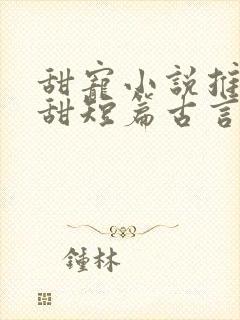 甜寵小說推
甜短篇古言
鍾林